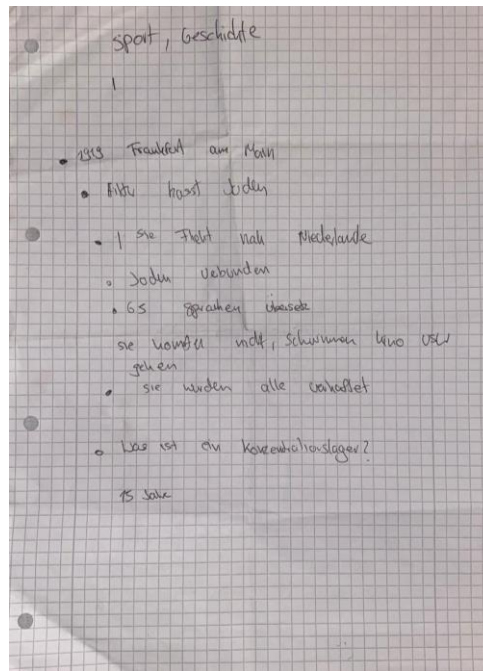 sport, Geschichte
• 1919 Frankfurt am Main
• Hitler hasst Juden
• Sie Flieht nah Niederlande
• Joden verbunden
• 65 sprachen übersetz
sie konnten nicht, schwimmen kino usw
gehen
• sie wurden alle verhaftet
• Was ist ein Konzentrationslager?
15 Jahre